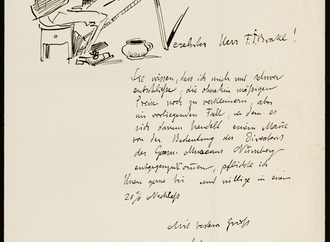 Verehrter Herr F. J. Brakl!
Sie wissen, dass ich mich nur schwer
entschließe, die ohnehin mäßigen
Preise noch zu verkleinern, aber
im vorliegenden Fall, wo denn es
sich darum handelt einem Manne
von der Bedeutung des Direktors
des Germ. Museums Nürnberg
entgegenzukommen, pflichte ich
Ihnen gerne bei und willige in einen
20% Nachlaß
Mit bestem Gruß